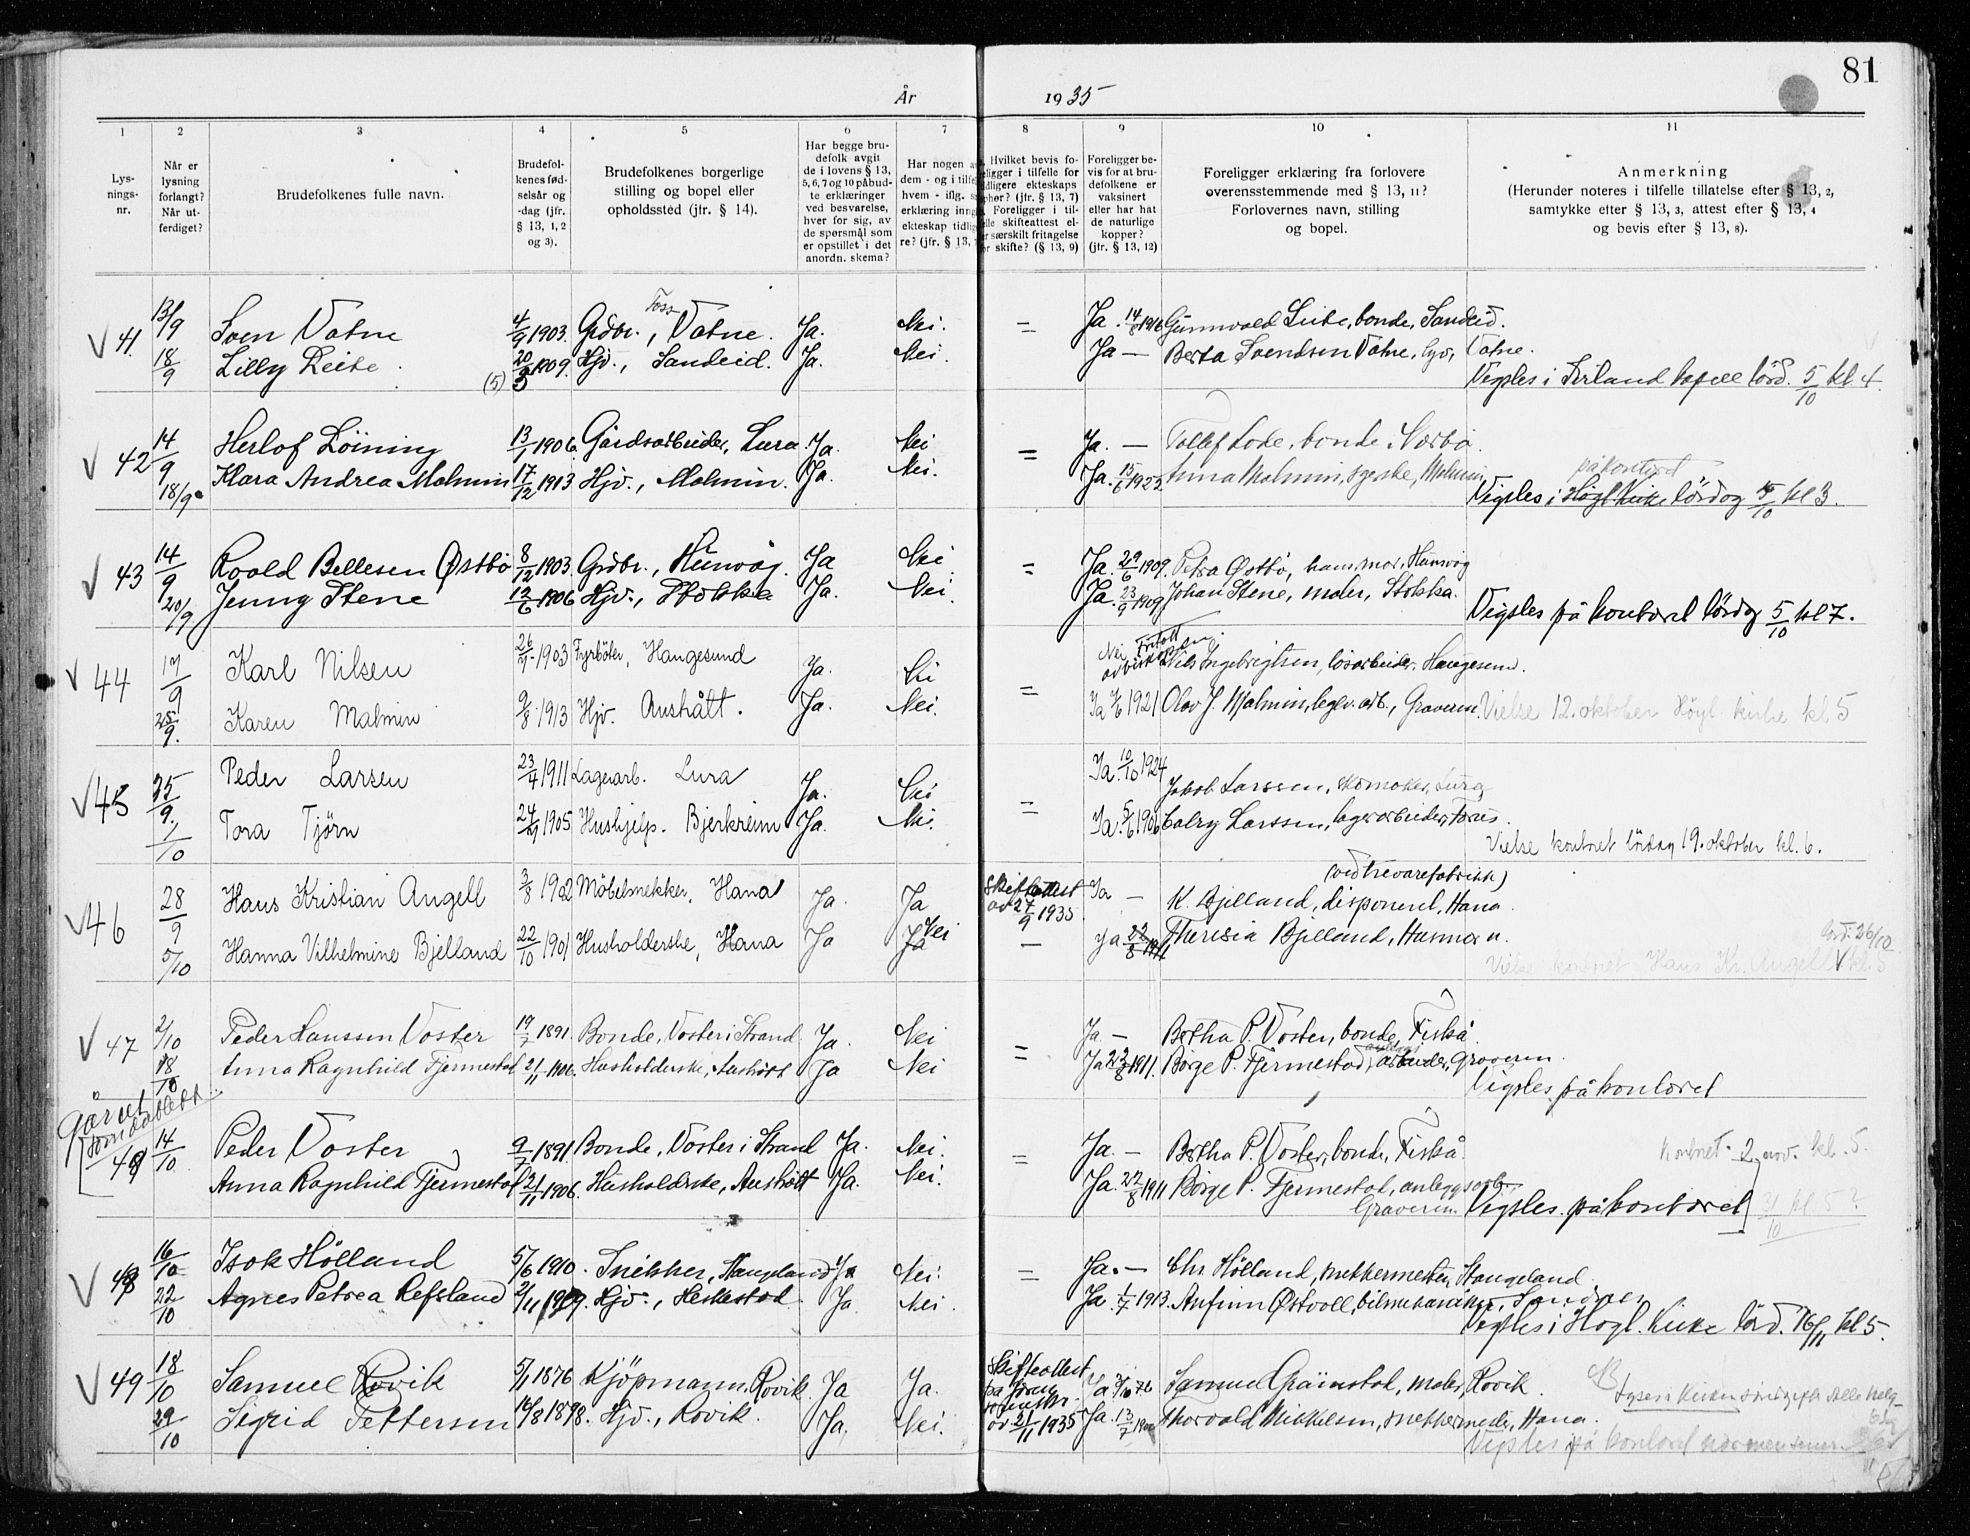 81
År 1935
1 2 3 4 5 6 7 8 9 10 11
Lys-
nings-
nr.
Når er
lysning
forlangt?
Når ut-
ferdiget?
Brudefolkenes fulle navn.
Brudefol-
kenes fød-
selsår og
-dag (jfr.
§ 13, 1, 2
og 3).
Brudefolkenes borgerlige
stilling og bopel eller
opholdssted (jfr. § 14).
Har begge bru-
defolk avgit
de i lovens § 13,
5, 6, 7 og 10 påbud-
te erklæringer
ved besvarelse,
hver for sig, av
de spørsmål som
er opstillet i det
anordn. skema?
Har nogen
dem - og i
hvem - iflg.
erklæring
ekteskap
re? (jfr. § 13,
Hvilket bevis fo-
religger i tilfelle for
tidligere ekteskaps
ophør? (jfr. § 13, 7)
Foreligger i til-
felle skifteattest el-
ler særskilt fritagelse
for skifte? (§ 13, 9)
Foreligger be-
vis for at bru-
defolkene er
vaksinert
eller har hat
de naturlige
kopper?
(jfr. § 13, 12)
Foreligger erklæring fra forlovere
overensstemmende med § 13, 11?
Forlovernes navn, stilling
og bopel.
Anmerkning
(Herunder noteres i tilfelle tillatelse efter § 13, 2,
samtykke efter § 13, 3, attest efter § 13, 4
og bevis efter § 13, 8).
41 13/9 Sven Vatne 4/9 1903. Grdbr., Foss Vatne. Ja. Nei. = Ja. 14/8 1916 Gunnvald Leite, bonde, Sandeid.
18/9 Lilly Leite (5) 20/3 1909. Hjv., Sandeid. Ja. Nei. Ja — Berta Svendsen Vatne, Vatne.
Vigsles i kapell lörd. 5/10 kl 4.
42 14/9 Herlof Löining 13/1 1906. Gårdsarbeider, Lura. Ja. Nei = Ja. — Tollef Lode, bonde, Nærbø.
18/9 Klara Andrea Malmin 17/12 1913 Hjv., Malmin. Ja. Nei. Ja. 15/6 1922 Anna Malmin, Malmin
på kontoret
Vigsles i Høgl. kirke lördag 5/10 kl 3.
43 14/9 Roald Bellesen Østbö 8/12 1903. Grdbr., Hunvåg. Ja Nei = Ja. 29/6 1909. Petra Østbö, hans mor, Hunvåg
20/9 Jenny Stene 12/6 1906 Hjv., Stokka Ja. Nei. Ja. 23/9 1909 Johan Stene, maler, Stokka.
Vigsles på kontoret lördag 5/10 kl 7.
44 17/9 Karl Nilsen 26/7 1903 Fyrböter, Haugesund Ja. Nei = Nei Nils Ingebrigtsen, løsarbeider, Haugesund.
25/9. Karen Malmin 9/8 1913 Hjv. Aushått. Ja. Nei. Ja 1921 Olav J. Malmin, Graveren.
Vielse 12. oktober Høgl. kirke kl 5
45 25/9. Peder Larsen 23/4 1911 Lagerarb. Lura Ja. Nei = Ja. 10/10 1924 Jakob Larssen, skomaker, Lura
1/10 Tora Tjörn 24/9 1905 Hushjelp. Bjerkreim Ja. Nei. Ja. 5/6 1906 Larssen, lagerarbeider, Forus.
Vielse kontoret lördag 19. oktober kl. 6.
46 28/9 Hans Kristian Angell 3/8 1902 Möbelsnekker, Hana Ja. Ja Skifteattest av 27/9 1935 Ja — K. Bjelland, disponent, Hana. (ved trevarefabrikk)
5/10 Hanna Vilhelmine Bjelland 22/10 1901 Husholderske, Hana Ja Ja Nei — Ja 22/8 1911 Theresia Bjelland, Hana.
Vielse kontoret Hans Kr. Angell lörd. 26/10 kl. 5
47 2/10 Peder Hanssen Voster 19/7 1891. Bonde, Voster i Strand Ja. Nei = Ja — Bertha P. Voster, bonde, Fiskå.
18/10 Anna Ragnhild Fjermestad 2/11 1906. Husholderske, Aushått Ja Nei Ja 22/8 1911. Börge P. Fjermestad, anleggsarbeider, Graveren.
Vigsles på kontoret
14/10 Peder Voster 9/7 1891 Bonde, Voster i Strand Ja. Nei. = Ja. — Bertha P. Voster, bonde, Fiskå. Kontoret 2. nov. kl. 5.
Anna Ragnhild Fjermestad 2/11 1906. Husholderske, Aushått Ja. Nei. Ja. 22/8 1911 Börge P. Fjermestad, anleggsarb., Graveren
Vigsles på kontoret kl 5?
48 16/10 Isak Hölland 5/6 1910. Snekker, Stangeland Ja Nei. = Ja. — Chr Hölland, snekkermester, Stangeland.
22/10 Agnes Petrea Refsland 2/11 1909. Hjv., Heskestad. Ja. Nei. Ja 1/7 1913. Anfinn Østvoll, Sandnes
Vigsles i Høgl. kirke lörd. 16/11 kl 5.
49 18/10 Samuel Rovik 5/1 1876 Kjöpmann, Rovik. Ja Ja. Skifteattest av 21/11 1935 Ja Samuel Gramstad, maler, Rovik.
29/10 Sigrid Pettersen 14/8 1878. Hjv., Rovik. Ja. Nei. Ja. 13/7 Thorvald Mikkelsen, snekkermester, Hana.
Vigsles på kontoret